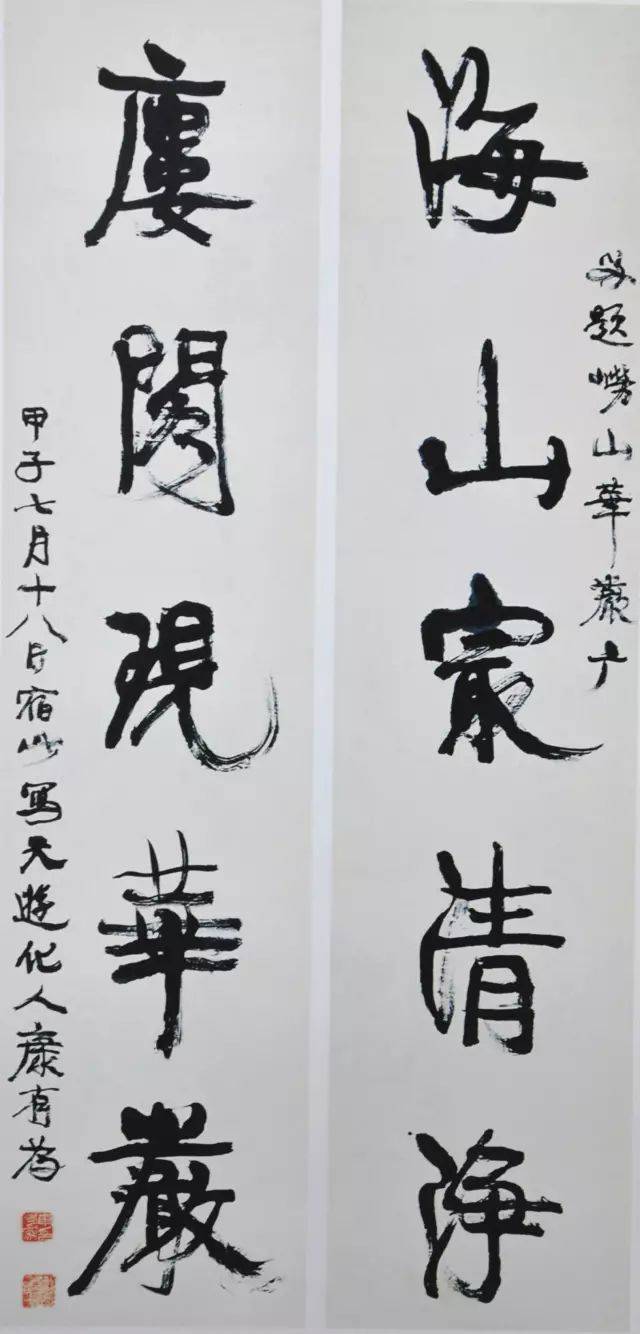 題嶗山華嚴
海山㝡清淨
廔閣現華嚴
甲子七月十八日宿此寫天遊化人康有為